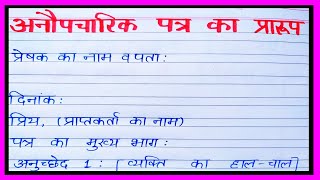 अनौपचारिक पत्र का प्रारूप
प्रेषक का नाम व पता:
दिनांक:
प्रिय, (प्राप्तकर्ता का नाम)
पत्र का मुख्य भाग:
अनुच्छेद 1: [व्यक्ति का हाल-चाल]